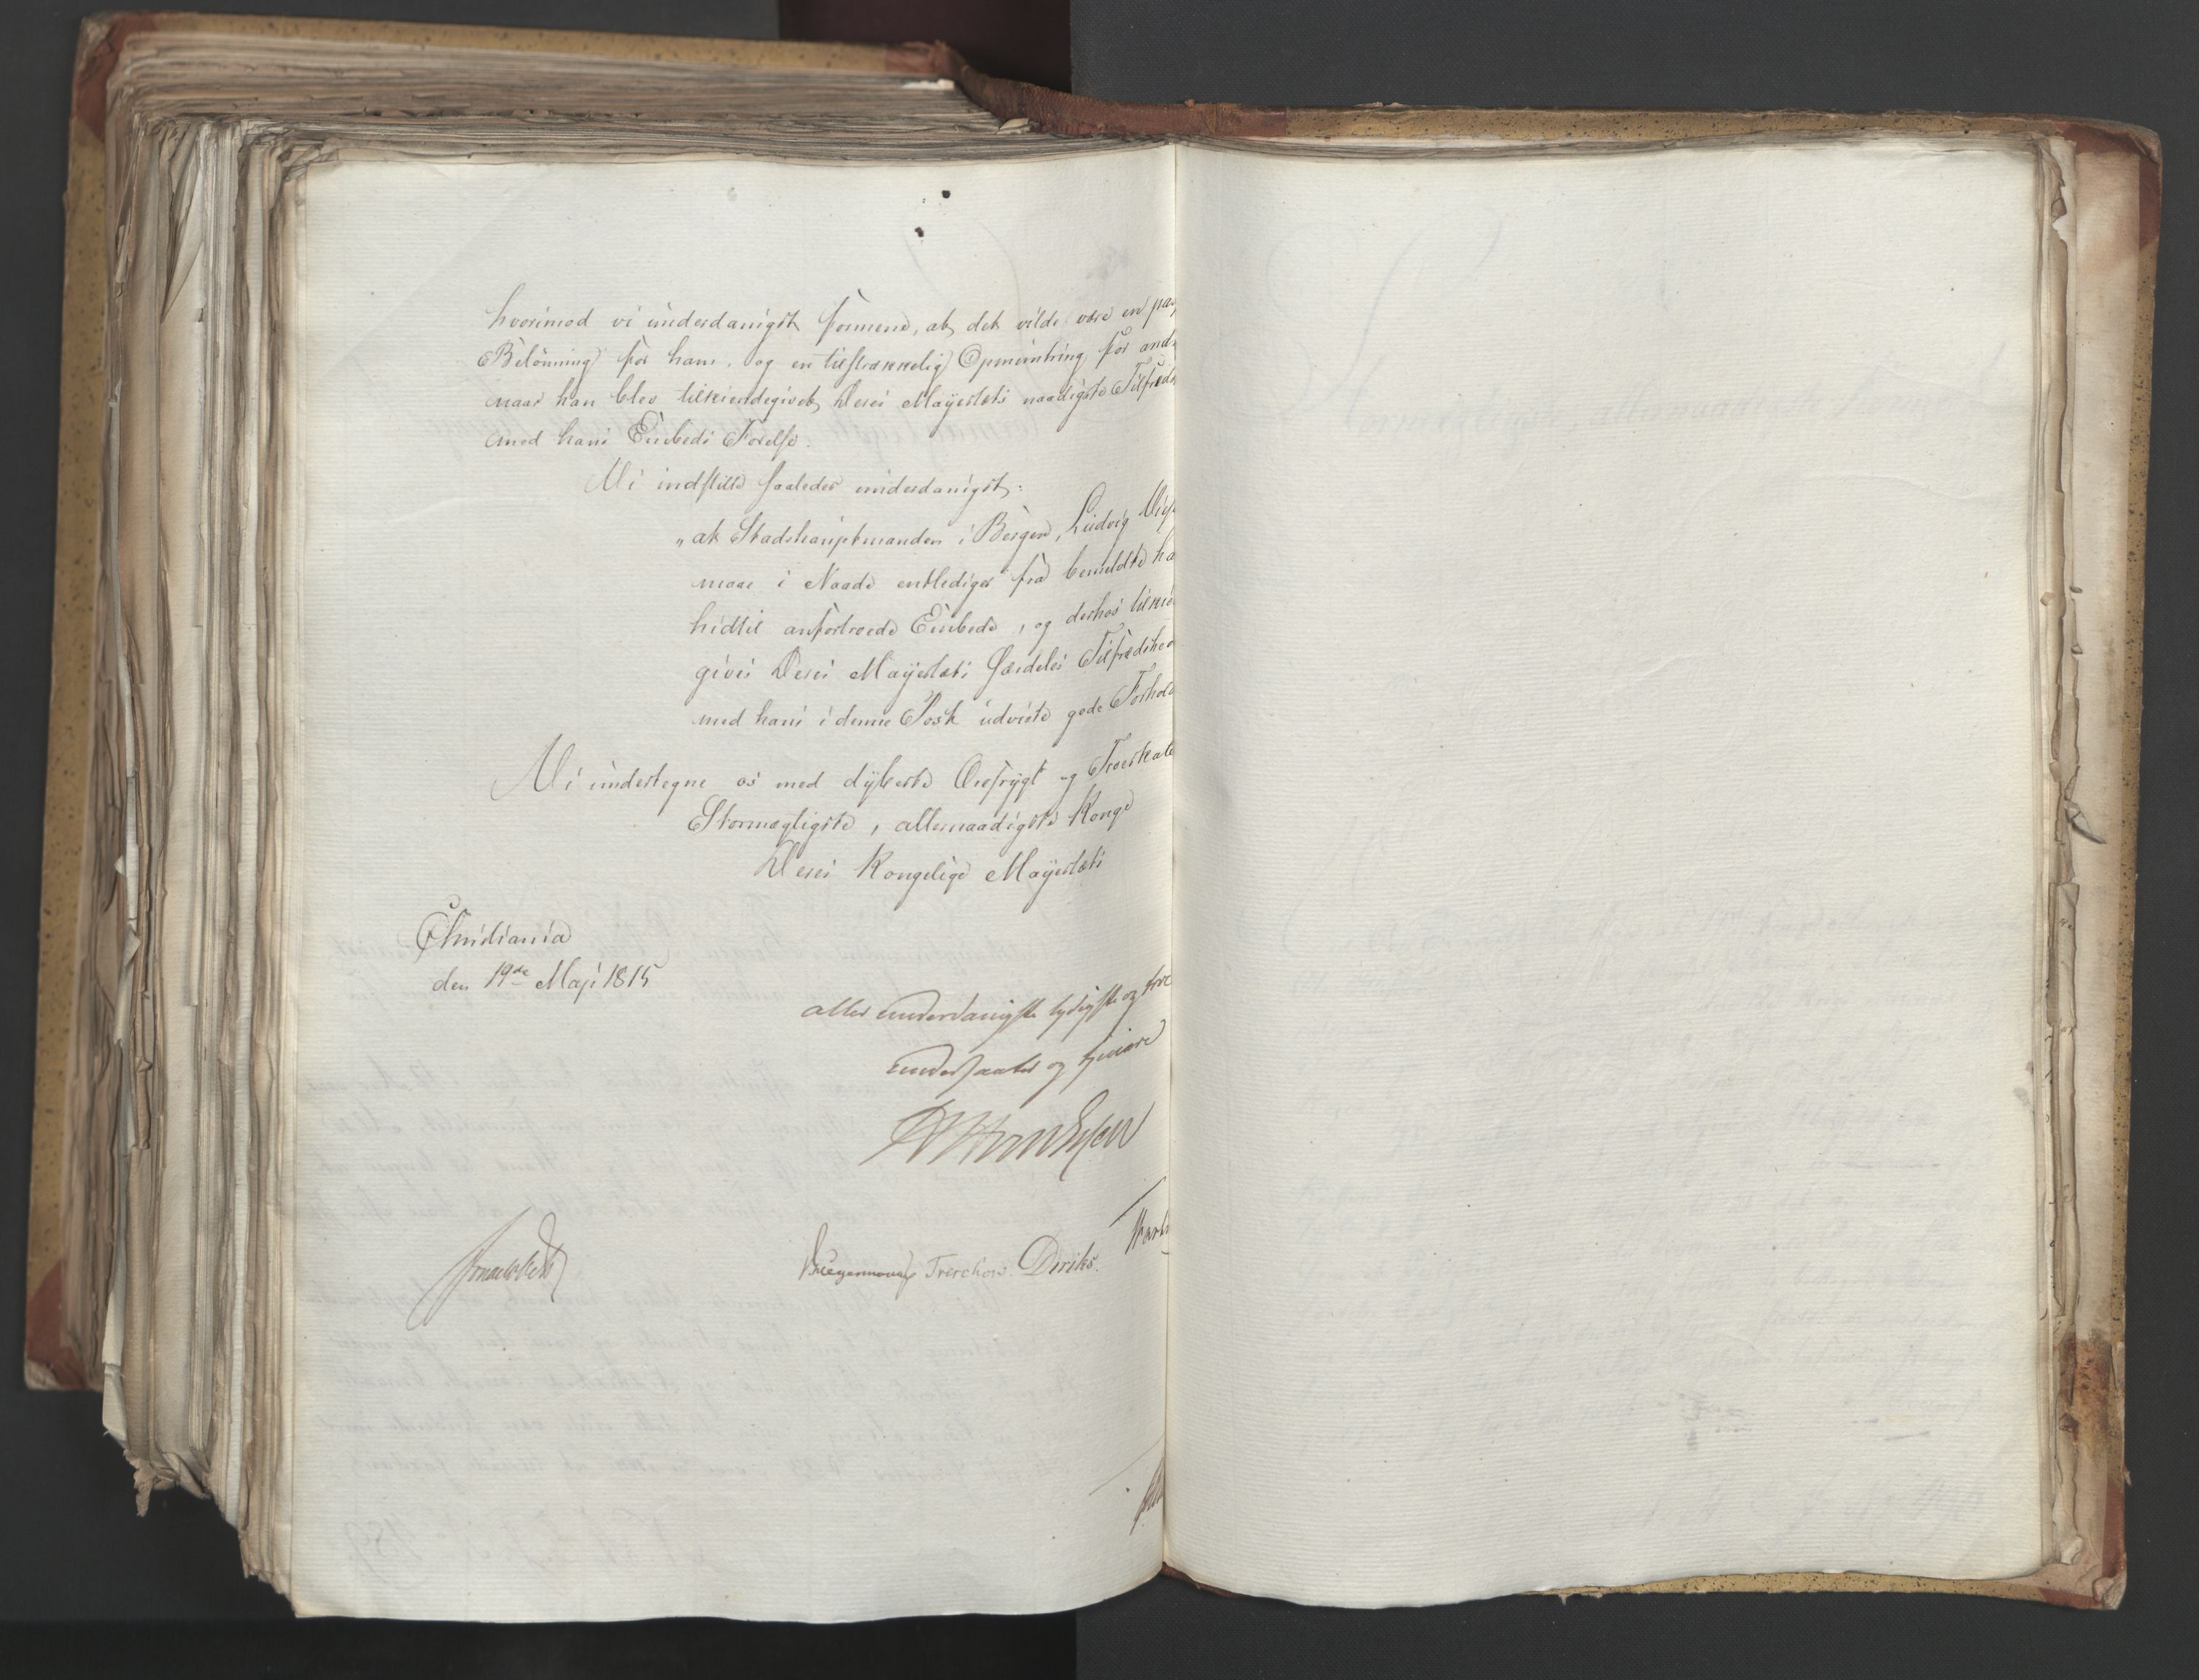 hvorimod vi underdanigst formene, at det vilde være en pas
Belönning for ham, og en tilstrækkelig Opmuntring for andr
naar han blev tilkiendegivet Deres Mayestæts naadigste Tilfreds
med hans Embeds Førelse.
Vi indstille saaledes underdanigst:
"at Stadshauptmanden i Bergen, Ludvig
maae i Naade entlediges fra bemeldte ha
hidtil anfortroede Embede, og derhos tilkie
gives Deres Mayestæts særdeles Tilfredshed
med hans i denne Post udviste gode Forhold
Vi undertegne os med dybeste Ærefrygt og Troeskab
Stormægtigste, allernaadigste Konge
Deres Kongelige Mayestæts
Christiania
den 19de Maji 1815
allerunderdanigste lydigste og troe
undersaatter og tjenere
Krieger Treschow. Diriks.